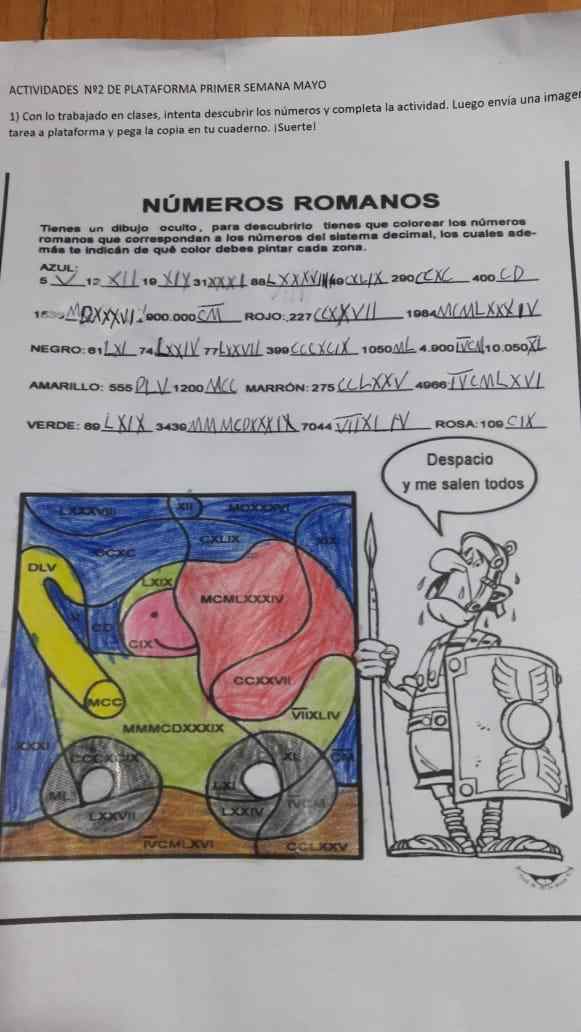 ACTIVIDADES Nº2 DE PLATAFORMA PRIMER SEMANA MAYO
1) Con lo trabajado en clases, intenta descubrir los números y completa la actividad. Luego envía una imagen
tarea a plataforma y pega la copia en tu cuaderno. ¡Suerte!
NÚMEROS ROMANOS
Tienes un dibujo oculto, para descubrirlo tienes que colorear los números
romanos que correspondan a los números del sistema decimal, los cuales ade-
más te indicán de qué color debes pintar cada zona.
AZUL:
5 V 12 XII 19 XIX 31 XXXI 88 LXXXVIII 149 CXLIX 290 CCXC 400 CD
900.000 C̅M̅ ROJO: 227 CCXXVII 1984 MCMLXXXIV
NEGRO: 61 LXI 74 LXXIV 77 LXXVII 399 CCCXCIX 1050 ML 4.900 I̅V̅CM 10.050 X̅L
AMARILLO: 555 DLV 1200 MCC MARRÓN: 275 CCLXXV 4966 I̅V̅CMLXVI
VERDE: 69 LXIX 3439 MMMCDXXXIX 7044 V̅I̅I̅XLIV ROSA: 109 CIX
Despacio
y me salen todos
LXXXVIII XII MDXXXVI
CXLIX XIX
CCXC
DLV LXIX
MCMLXXXIV
V CD
CIX
CCXXVII
MCC
V̅I̅I̅XLIV
MMMCDXXXIX
XXXI CCCXCIX X̅L C̅M̅
ML LXI
LXXVII LXXIV I̅V̅CM
I̅V̅CMLXVI CCLXXV